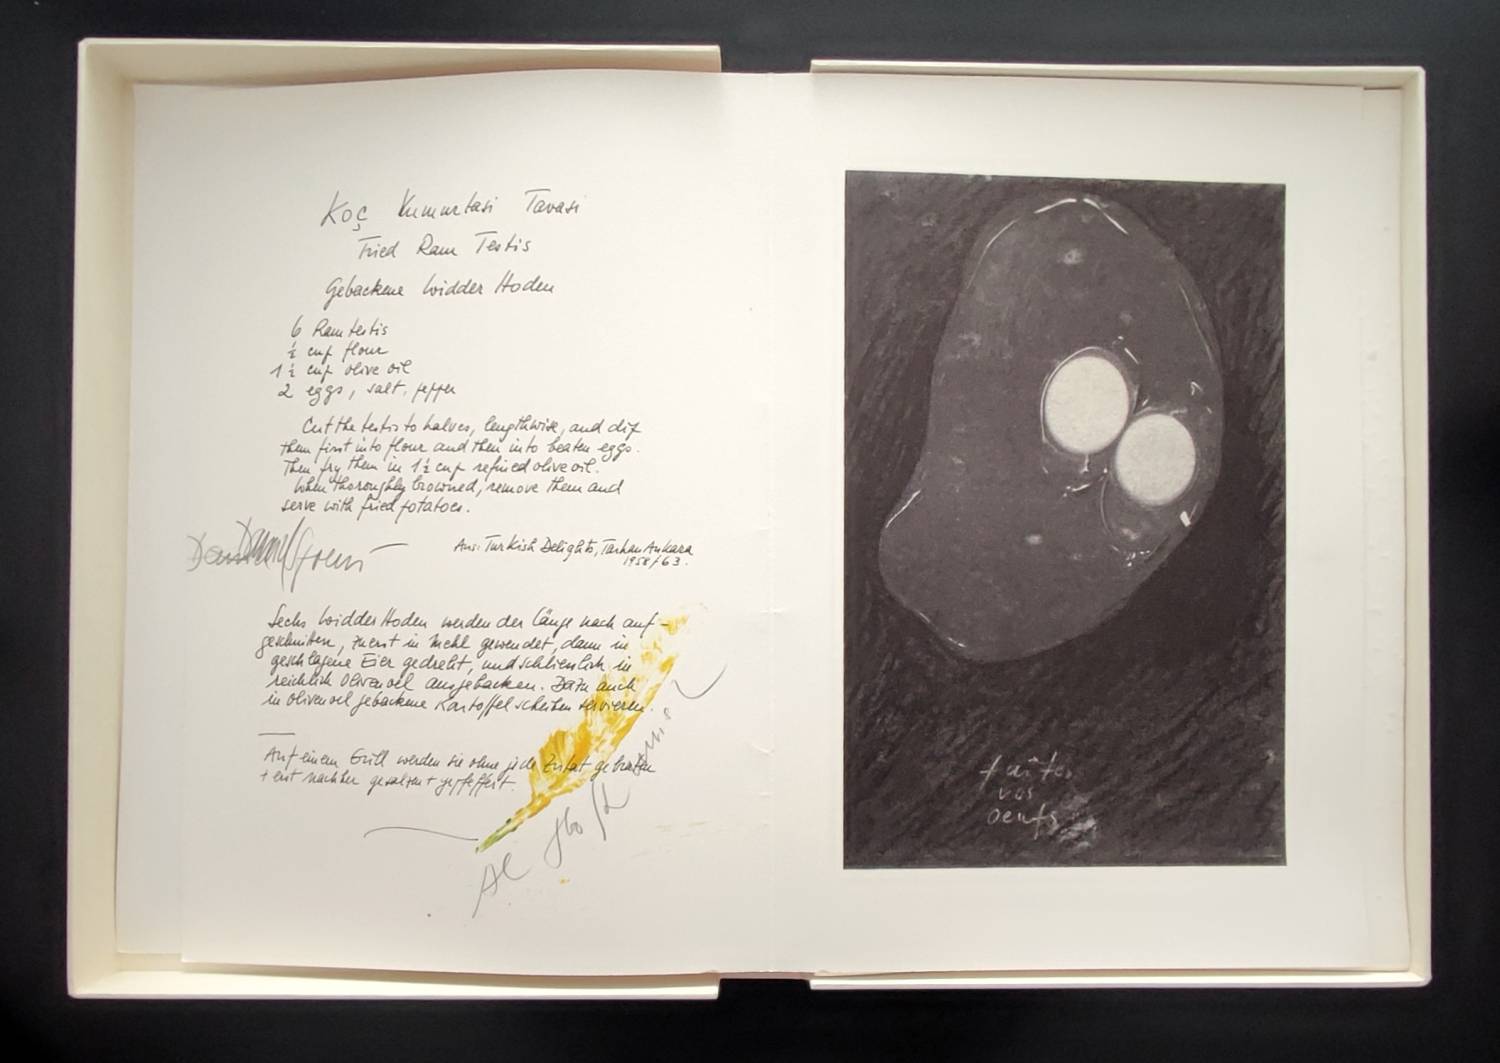 Koç Yumurtasi Tavasi
Fried Ram Testis
Gebackene Widder Hoden
6 Ram testis
½ cup flour
1½ cup olive oil
2 eggs, salt, pepper
Cut the testis to halves, lengthwise, and dip
them first into flour and then into beaten eggs.
Then fry them in 1½ cup refined olive oil.
When thoroughly browned, remove them and
serve with fried potatoes.
Aus: Turkish Delights, Tarhan Ankara
1958/63.
Daniel Spoerri
Sechs Widder Hoden werden der Länge nach auf-
geschnitten, zuerst in Mehl gewendet, dann in
geschlagene Eier gedreht, und schliesslich in
reichlich Olivenoel ausgebacken. Dazu auch
in olivenoel gebackene Kartoffelscheiben servieren.
Auf einem Grill werden sie ohne jede Zutat gebraten
+ erst nachher gesalzen + gepfeffert.
faites
vos
oeufs